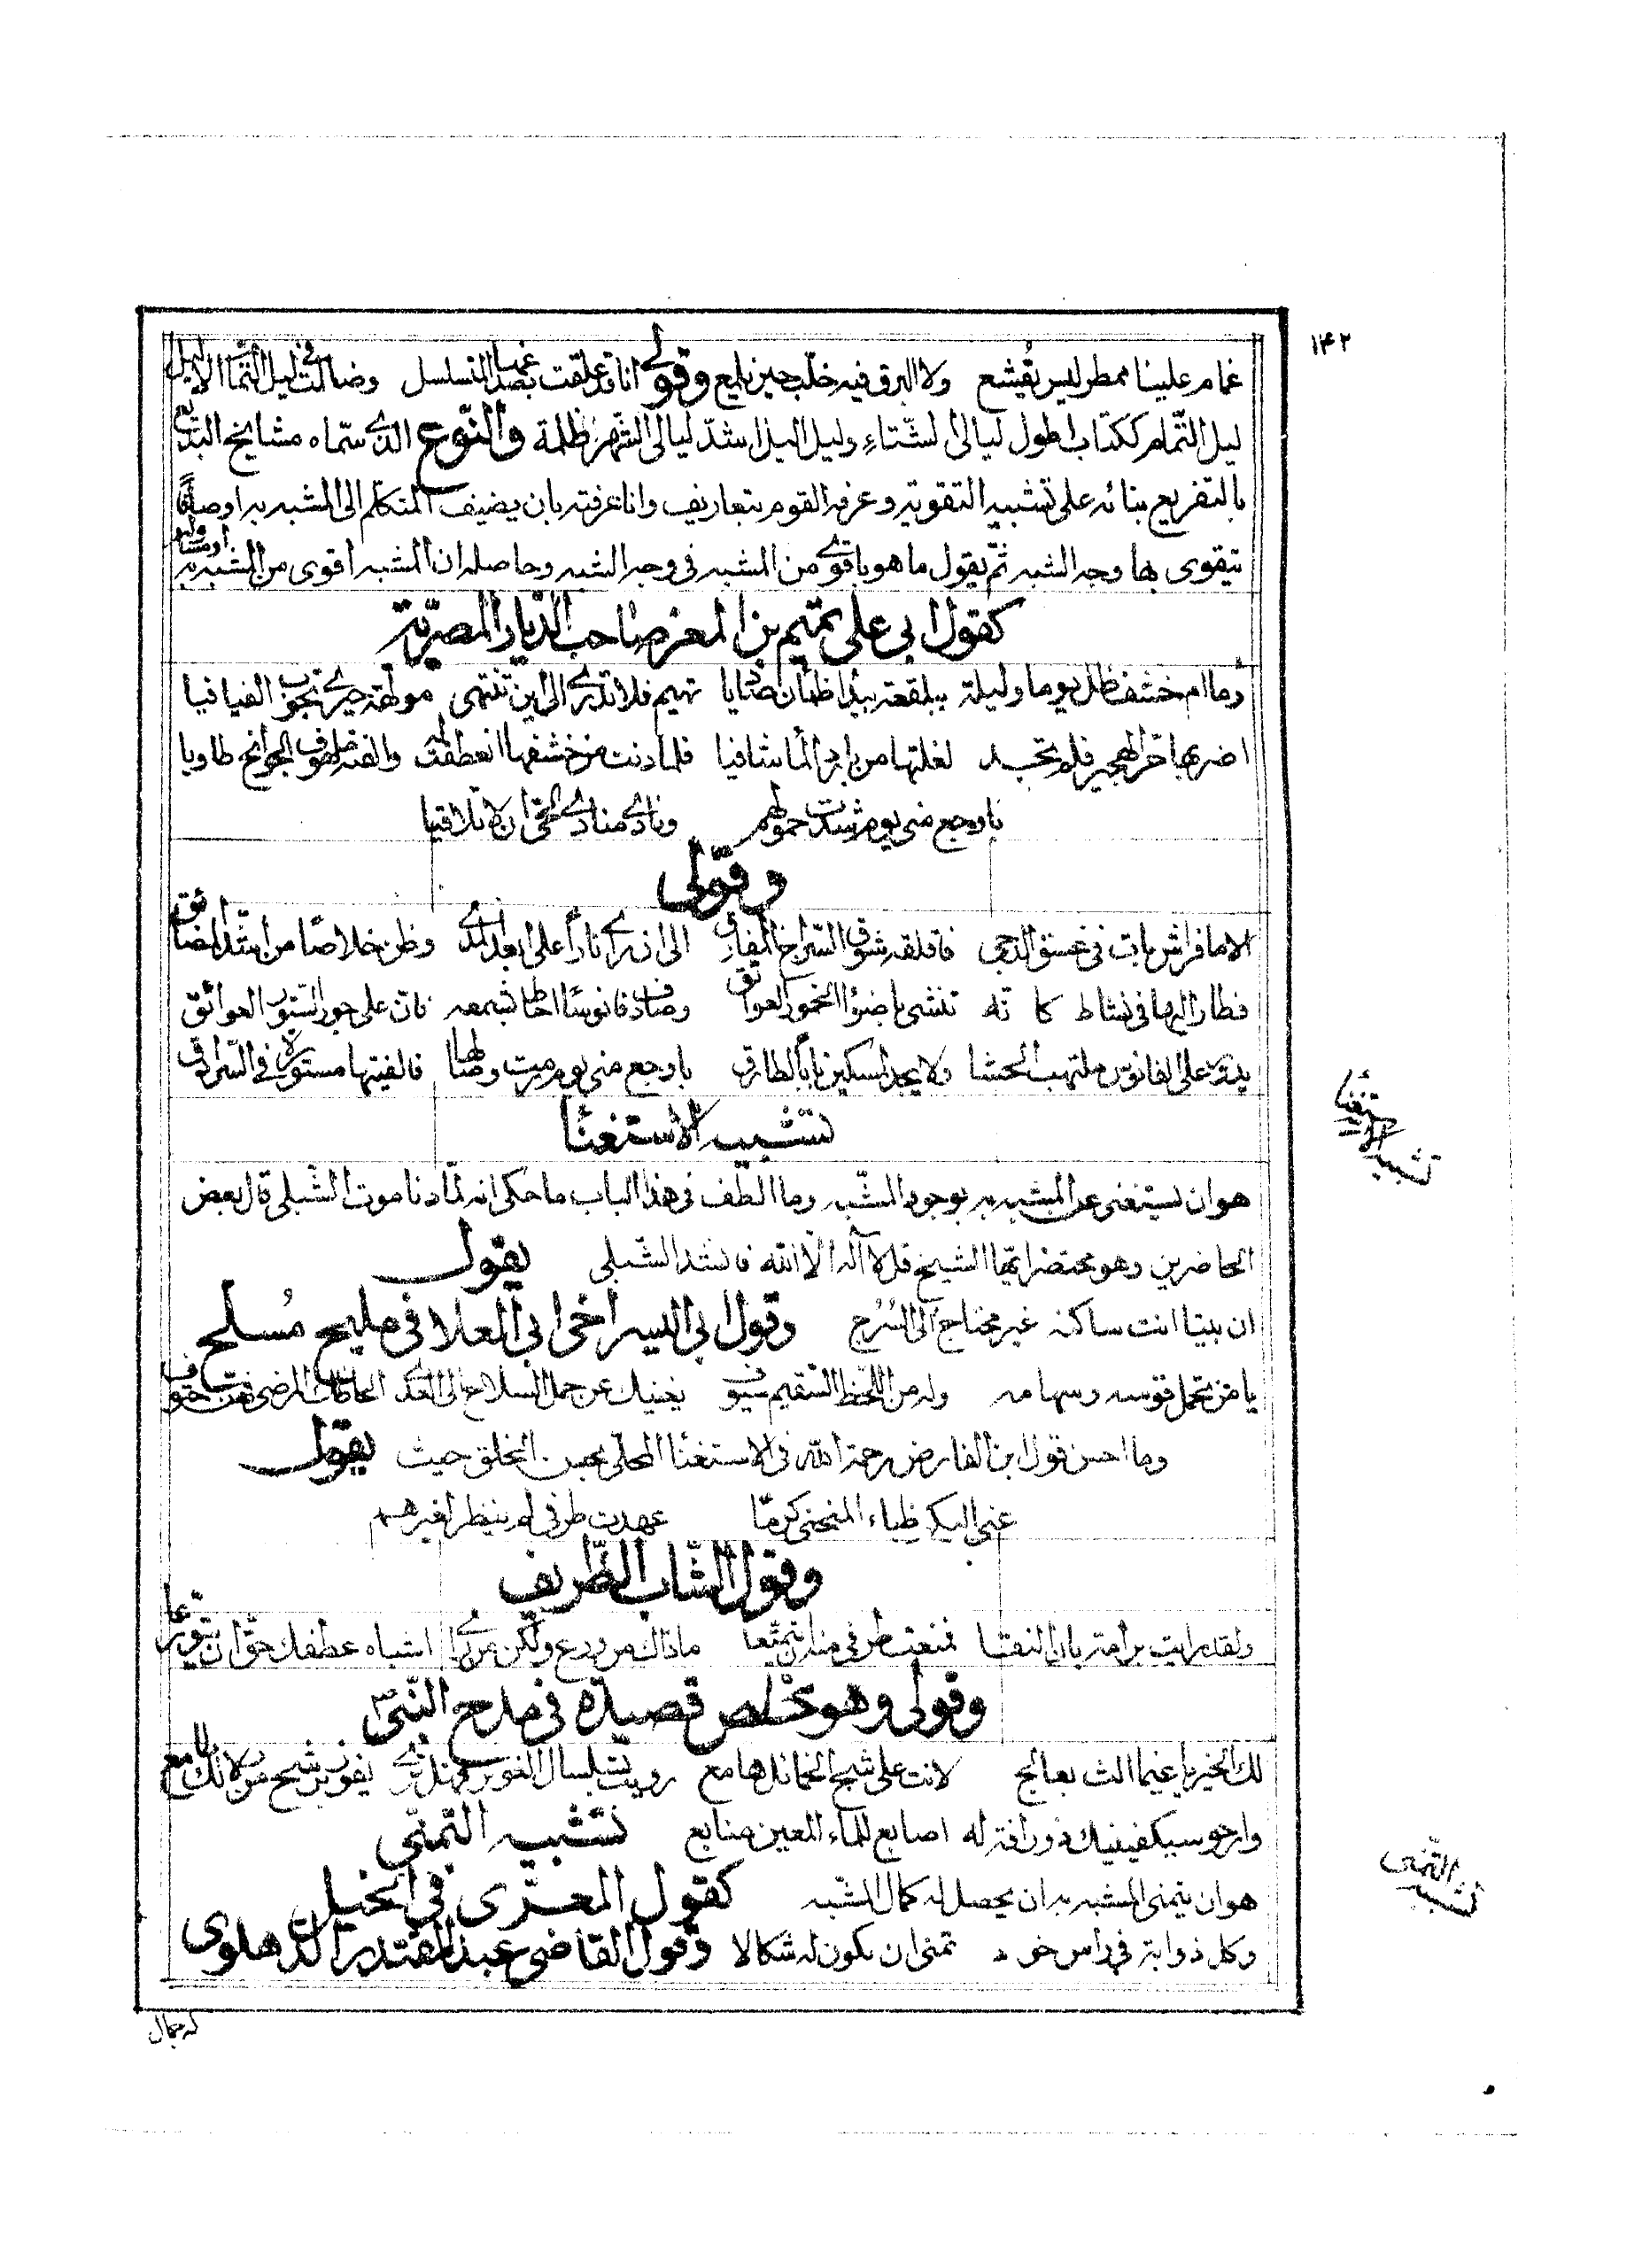 ١٤٢
غمام علينا ممطر ليس يُقشع ولا البرق فيه خلّب حين يلمع وقولي انا قد علقت بصدغها المتسلسل وضللت في ليل التمام الاليل
ليل التّمام ككتاب اطول ليالي الشتاء وليل اليل اشدّ ليالي الشهر ظلمة والنّوع الذي سمّاه مشايخ البديع
بالتفريع بنائه على تشبيه التقوية وعرفه القوم بتعاريف وانا عرفته بان يضيف المتكلم الى المشبه به اوصافًا
يتقوى بها وجه الشبه ثمّ يقول ما هو باقوى من المشبه في وجه الشبه وحاصله ان المشبه اقوى من المشبه به او مساو له
كقول ابي علي تميم بن المعز صاحب الدّيار المصريّة
وما ام خشف ظل يوما وليلة ببلقعة بيداء ظمآن صاديا تهيم فلا تدري الى اين تنتهي مولّهة حيرى تجوب الفيافيا
اضر بها حرّ الهجير فلم تجد لغلتها من بارد الماء شافيا فلما دنت من خشفها انعطفت له والفته ملهوف الجوانح طاويا
باوجع مني يوم شدت حمولهم ونادى منادي الحي ان لا تلاقيا
وقولي
الا ما فراش بات في غسق الدجى فاقلقه شوق السّراج المفارق الى ان رأى نارًا على ابعد المدى وظن خلاصًا من اشد المضائق
فطار اليها في نشاط كانه تنشى باضواء الخمور العواتق وصادف فانوسًا احاط بشمعه فان على جور الستور العوائق
يدور على الفانوس ملتهب الحشا ولا يجد المسكين بابًا لطارق باوجع مني يوم رمت وطائها فالفيتها مستورة في السّرادق
تشبيه الاستغنا
تشبيه الاستغنا
هو ان يستغنى عن المشبه به بوجود المشبه وما الطف في هذا الباب ما حكى انه لمّا دنا موت الشّبلي قال بعض
الحاضرين وهو محتضر ايّها الشيخ قل لا آله الّا الله فانشد الشبلي يقول
ان بيتا انت ساكنه غير محتاج الى السُرُج وقول ابي اليسر اخي ابي العلا في مليح مُسلّح
يا من تحمل قوسه وسهامه وله من اللحظ السقيم سيوف يغنيك عن حمل السلاح الى العدى الحاظك المرضى فهن حتوف
وما احسن قول ابن الفارض رحمة الله في الاستغنا المحلّى بحسن التخلق حيث يقول
عني اليكم ظباء المنحنى كرمًا عهدت طرفي لم ينظر لغيرهم
وقول الشّاب الظّريف
ولقد رايت برامة بان النقا فمنعت طرفي منه ان يتمتّعا ما ذاك من ورع ولكن من رأى اشباه عطفك حقّ ان يتورّعا
وقولي وهو مخلص قصيدة في مدح النّبيّ
لك الخير يا غيما الث بعالج لانت على شيح الخمائل هامع
وارجو سيكفينيك ذو رافة له اصابع للماء المعين منابع تشبيه التّمنّي
تشبيه التّمنّي
هو ان يتمنى المشبه به ان يحصل له كمال المشبه كقول المعرّي في الخيل
وكل ذوابة في راس خود تمنى ان تكون له شكالا وقول القاضي عبد المقتدر الدّهلوي
له جمال